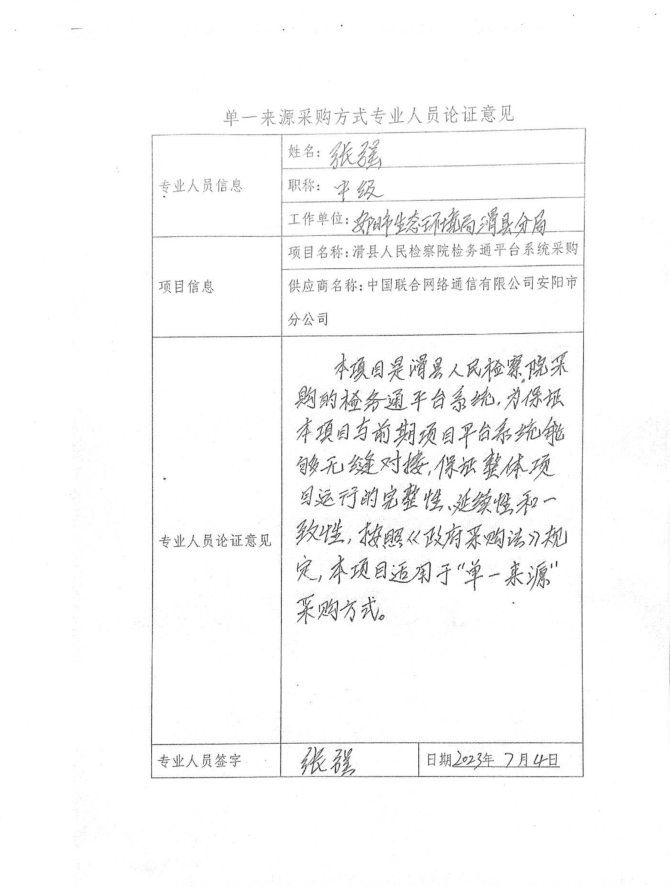 单一来源采购方式专业人员论证意见
专业人员信息
姓名：张强
职称：中级
工作单位：安阳市生态环境局滑县分局
项目信息
项目名称：滑县人民检察院检务通平台系统采购
供应商名称：中国联合网络通信有限公司安阳市
分公司
专业人员论证意见
本项目是滑县人民检察院采
购的检务通平台系统，为保证
本项目与前期项目平台系统能
够无缝对接，保证整体项
目运行的完整性、延续性和一
致性，按照《政府采购法》规
定，本项目适用于“单一来源”
采购方式。
专业人员签字
张强
日期2023年7月4日